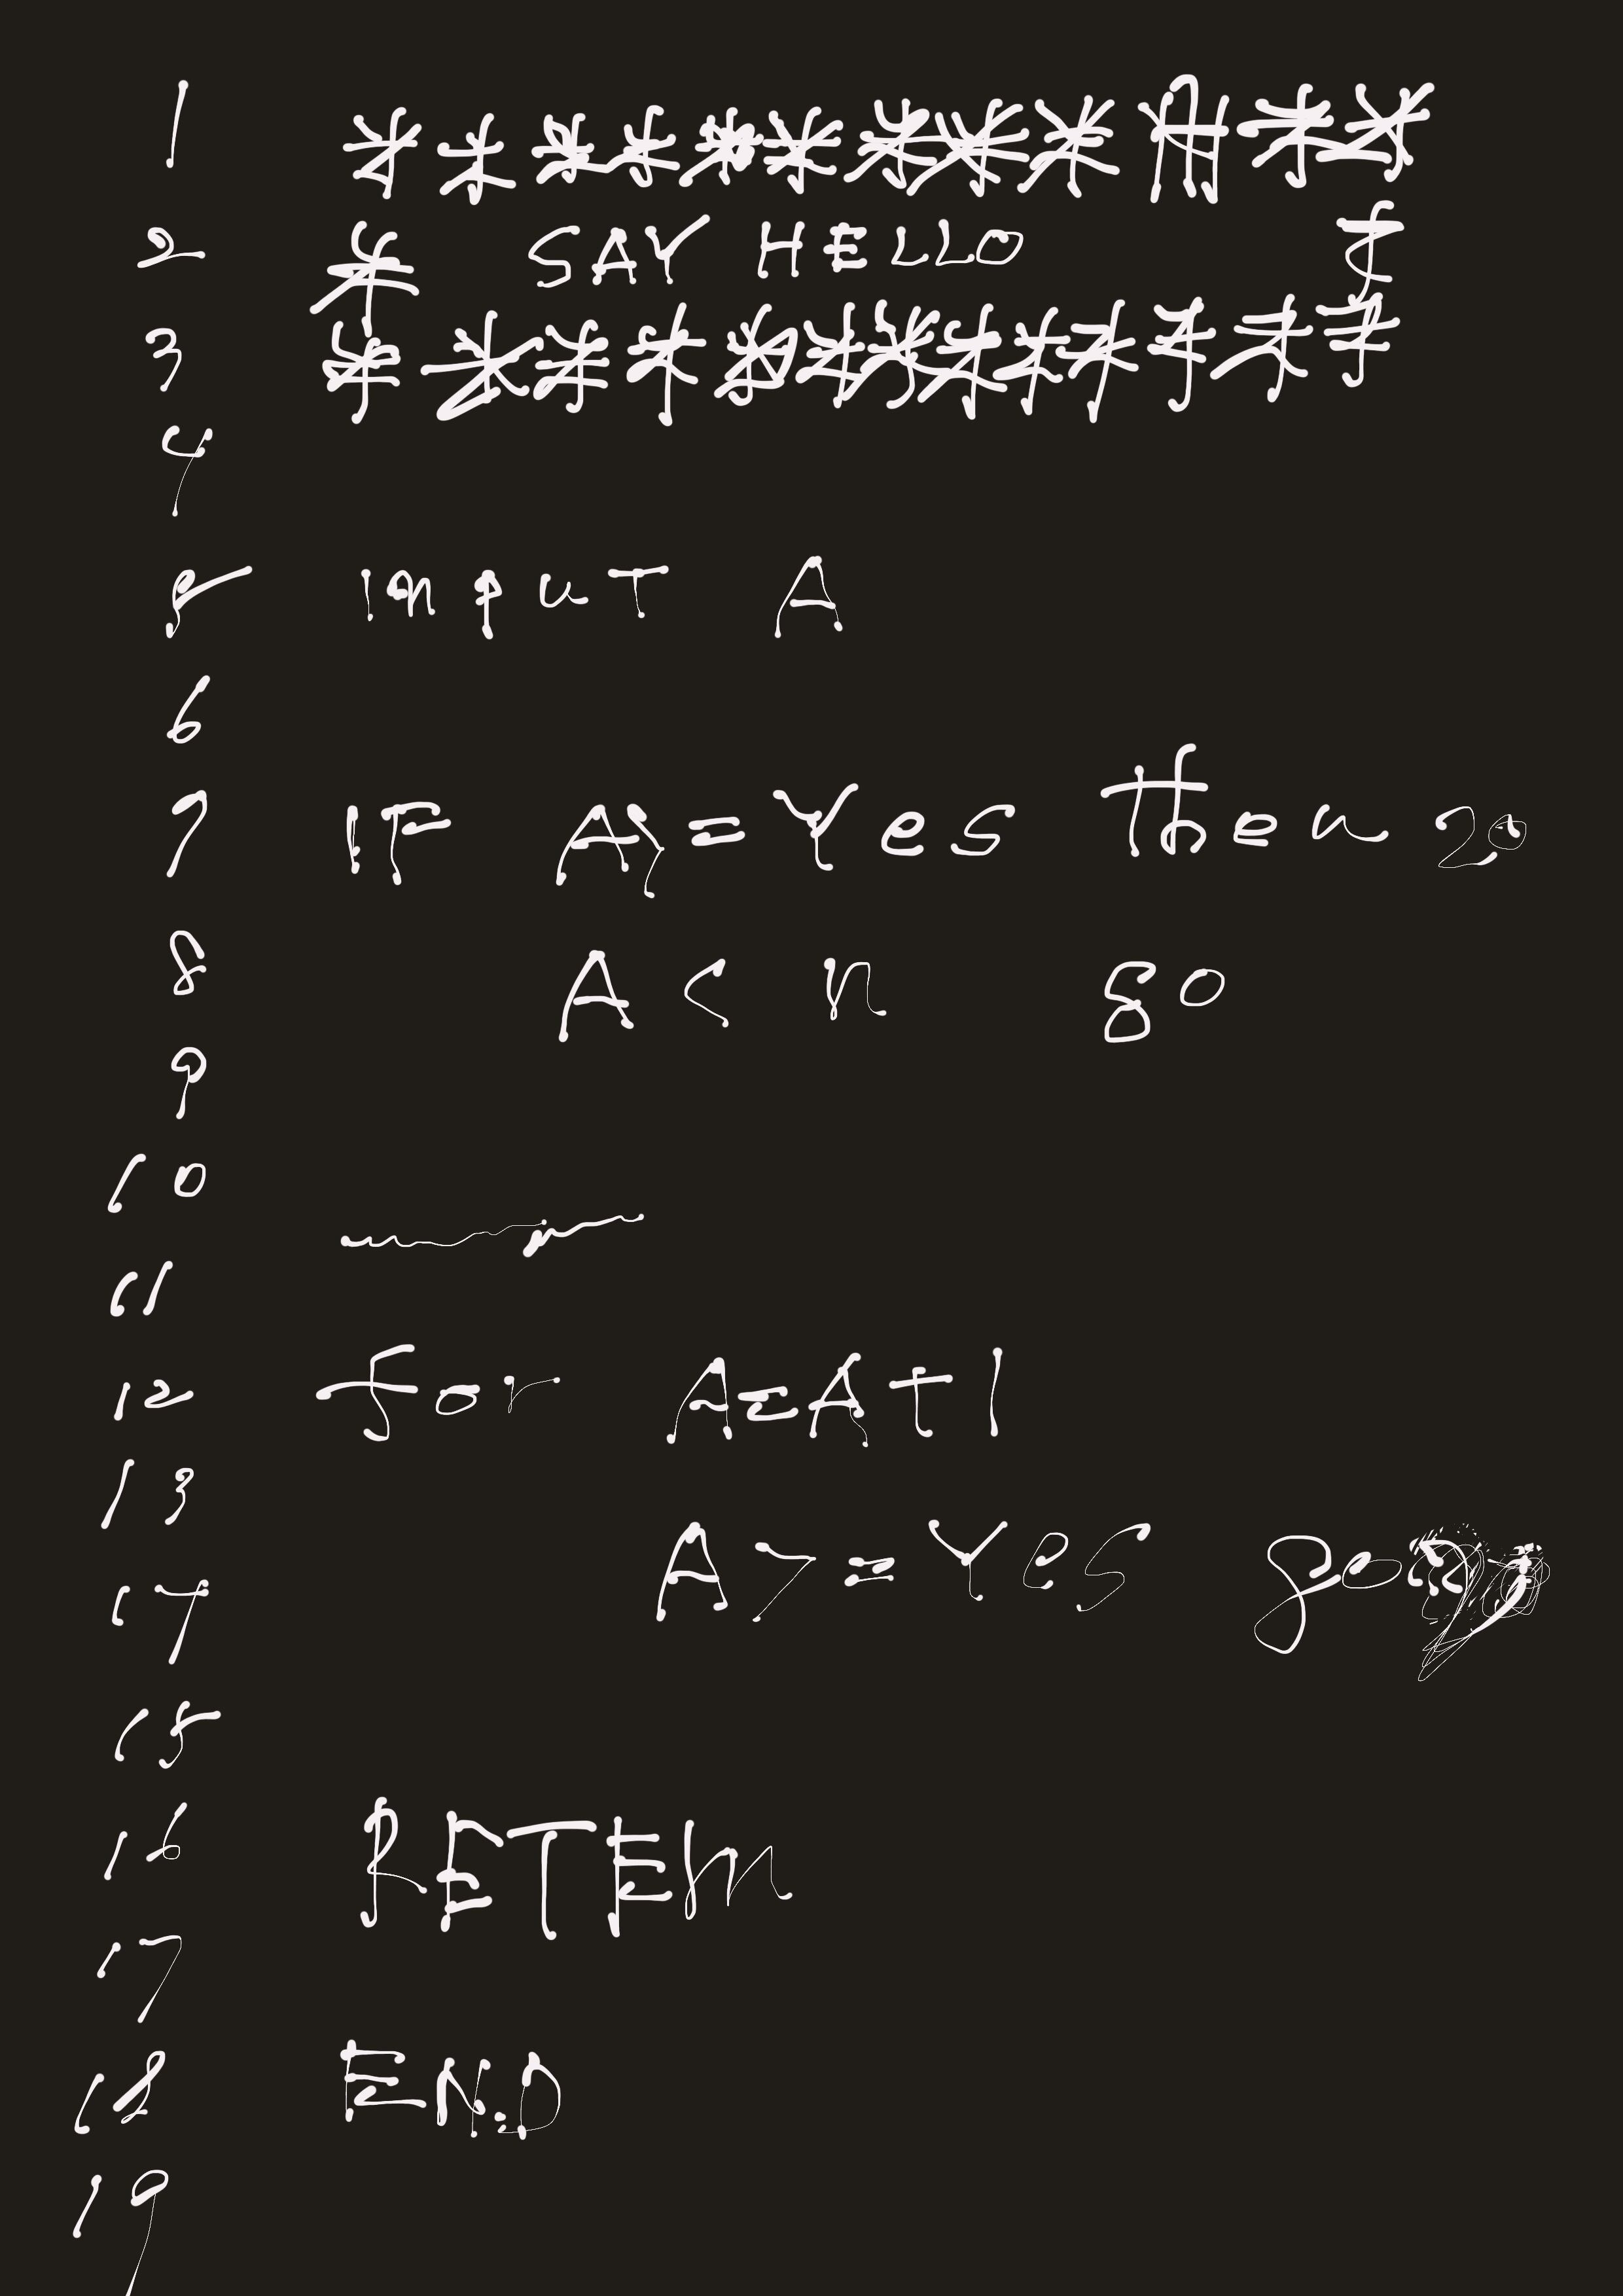 1 ************
2 * SAY HELLO *
3 *************
4
5 input A
6
7 IF A = Yes then 20
8 A < n 80
9
10
11
12 for A=A+1
13
14 A>=Yes go
15
16 RETEM
17
18 END
19